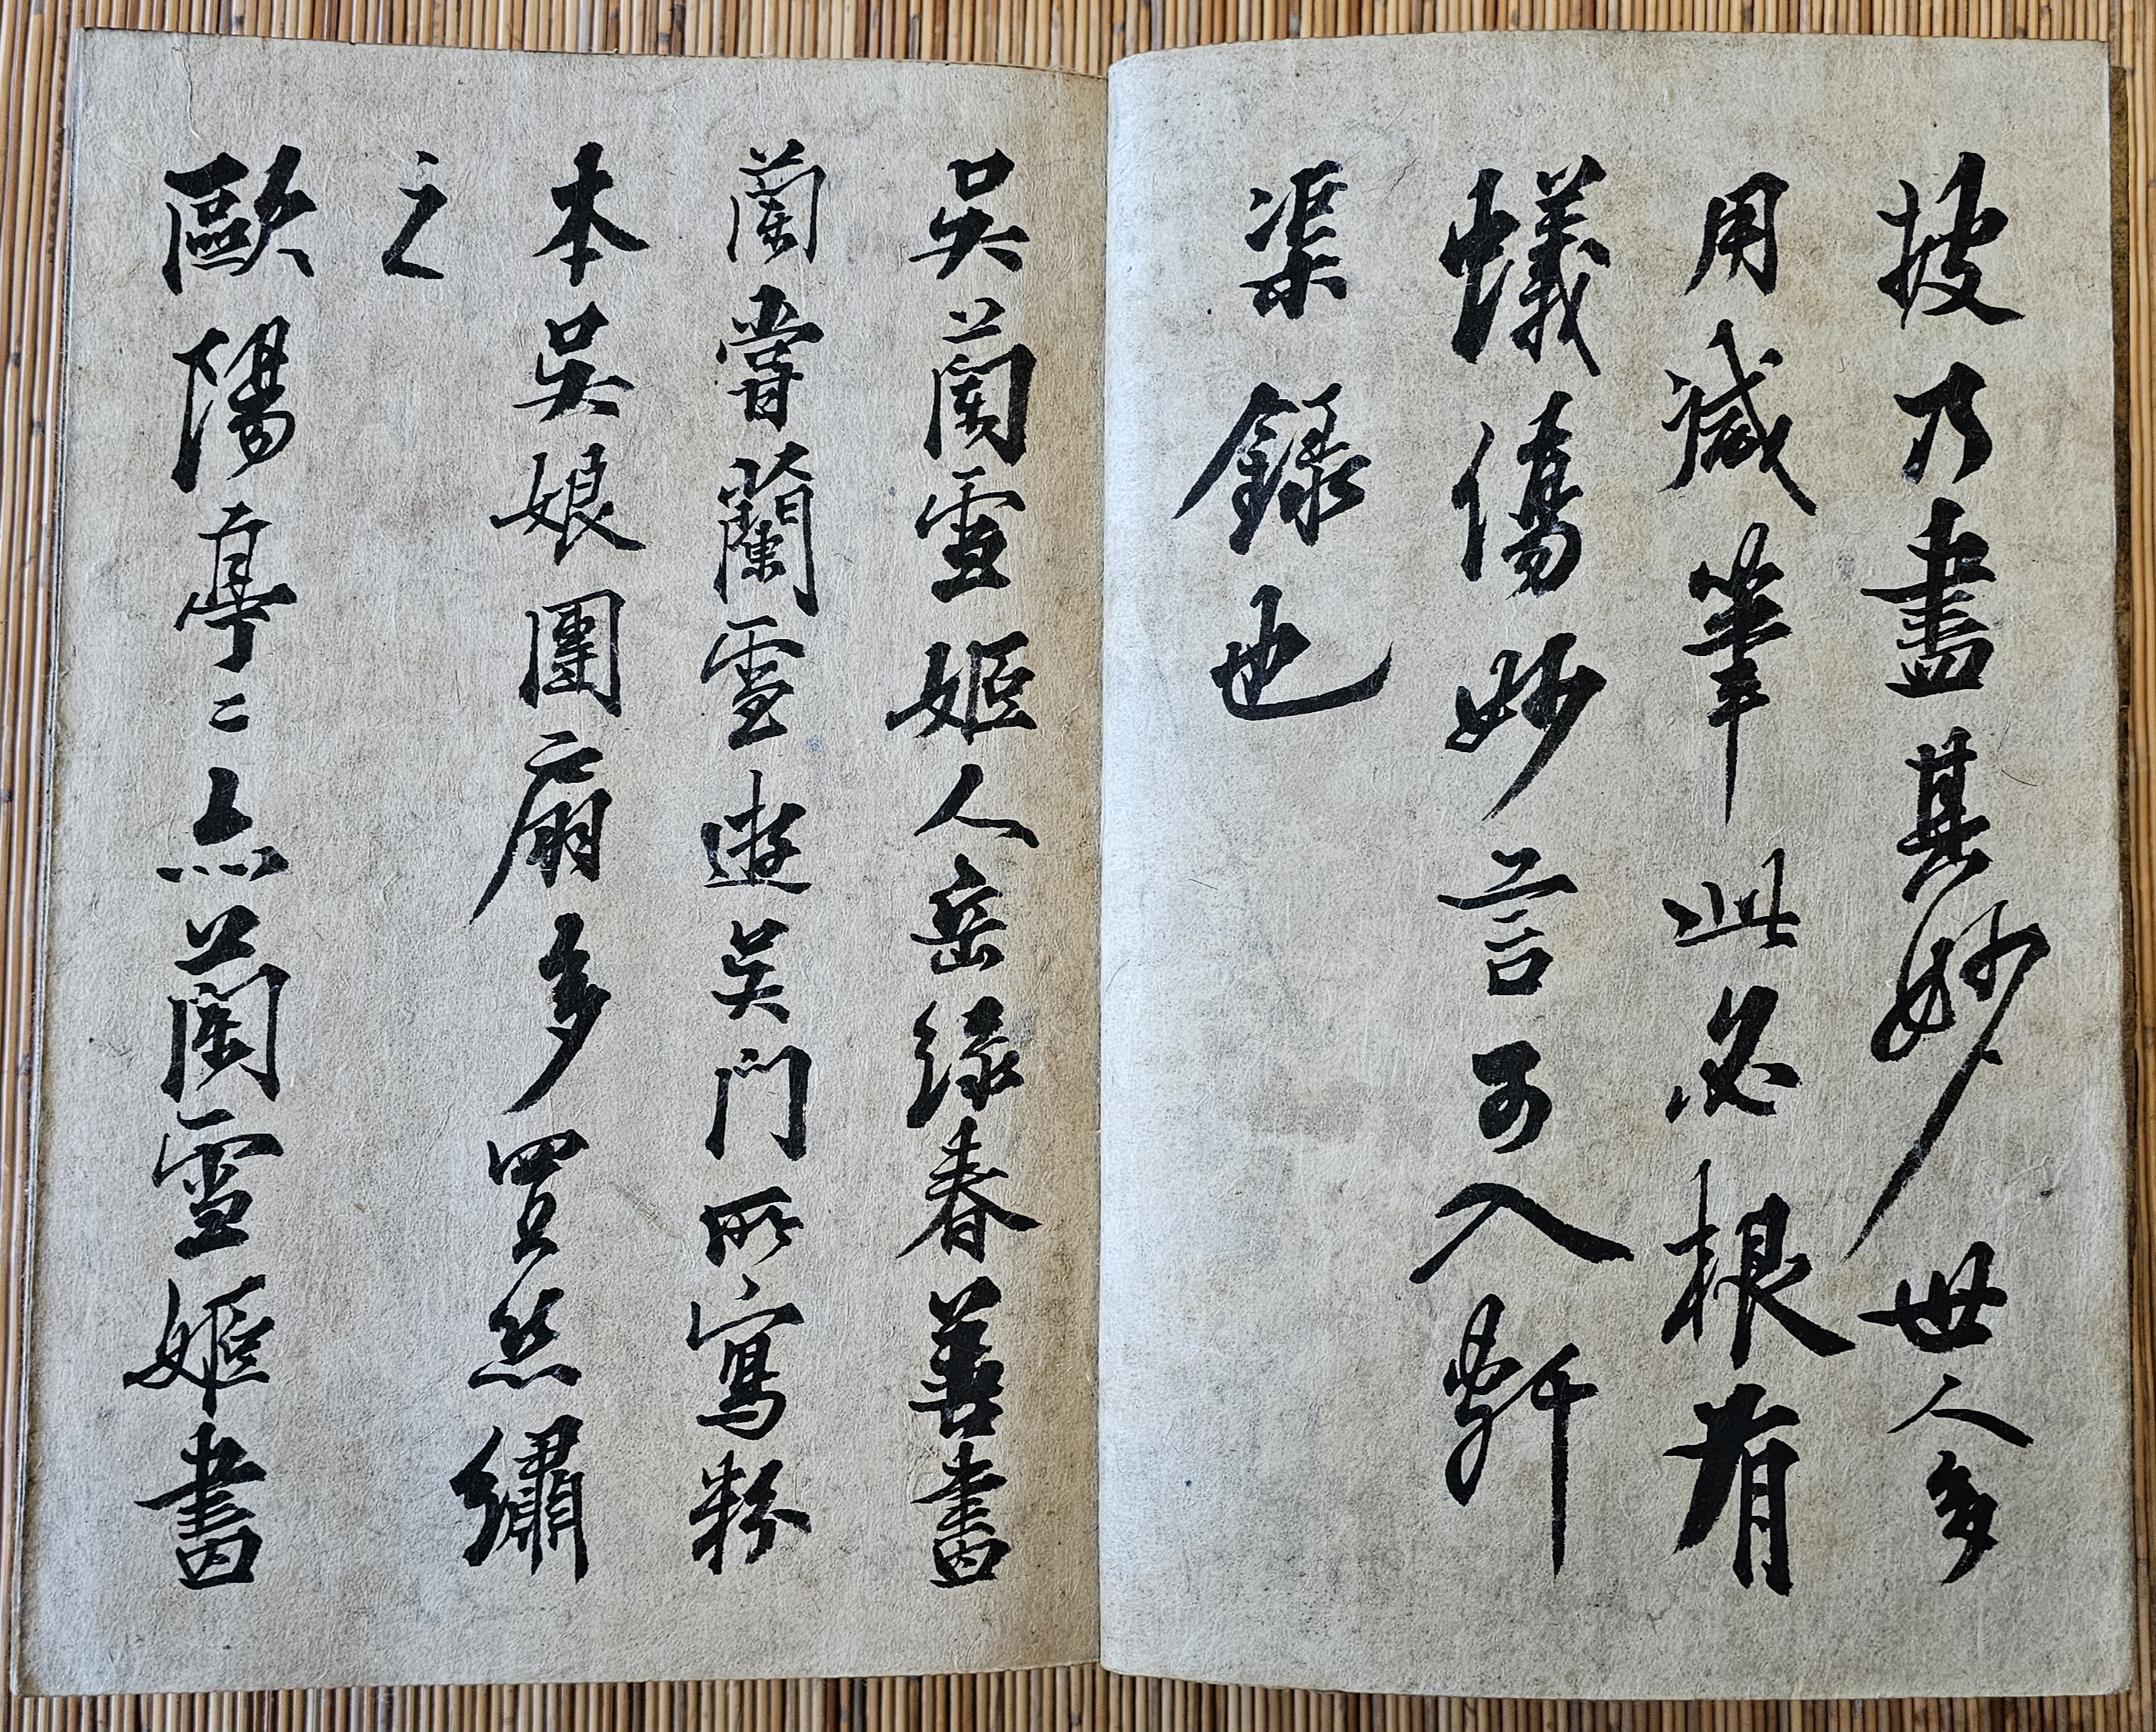 披乃盡其妙世人多
用減筆此必根有
蟻傷妙言可入軒
渠錄也
吳蘭雪姬人岳綠春善畫
蘭嘗蘭雪遊吳門所寫粉
本吳娘團扇多買絲繡
之
歐陽亭々亦蘭雪姬畫